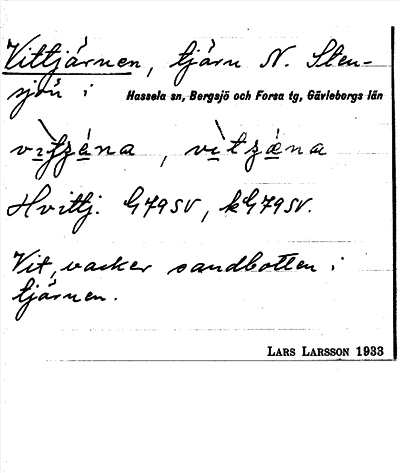 Vittjärnen, tjärn N. Sten-
sjön i Hassela sn, Bergsjö och Forsa tg, Gävleborgs län
Hvittj. G79SV, kG79SV.
Vit, vacker sandbotten i
tjärnen.
LARS LARSSON 1933